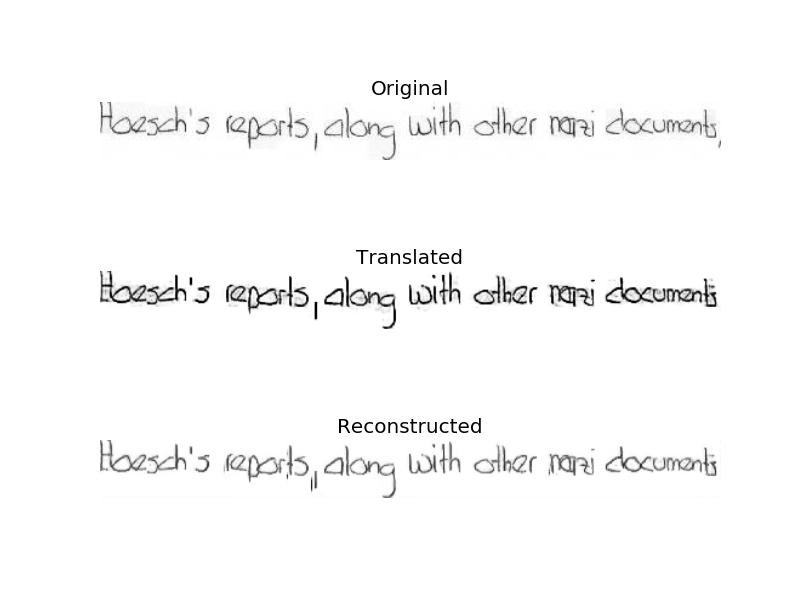 Original
Hoesch's reports, along with other nazi documents,
Translated
Hoesch's reports, along with other nazi documents
Reconstructed
Hoesch's reports, along with other nazi documents